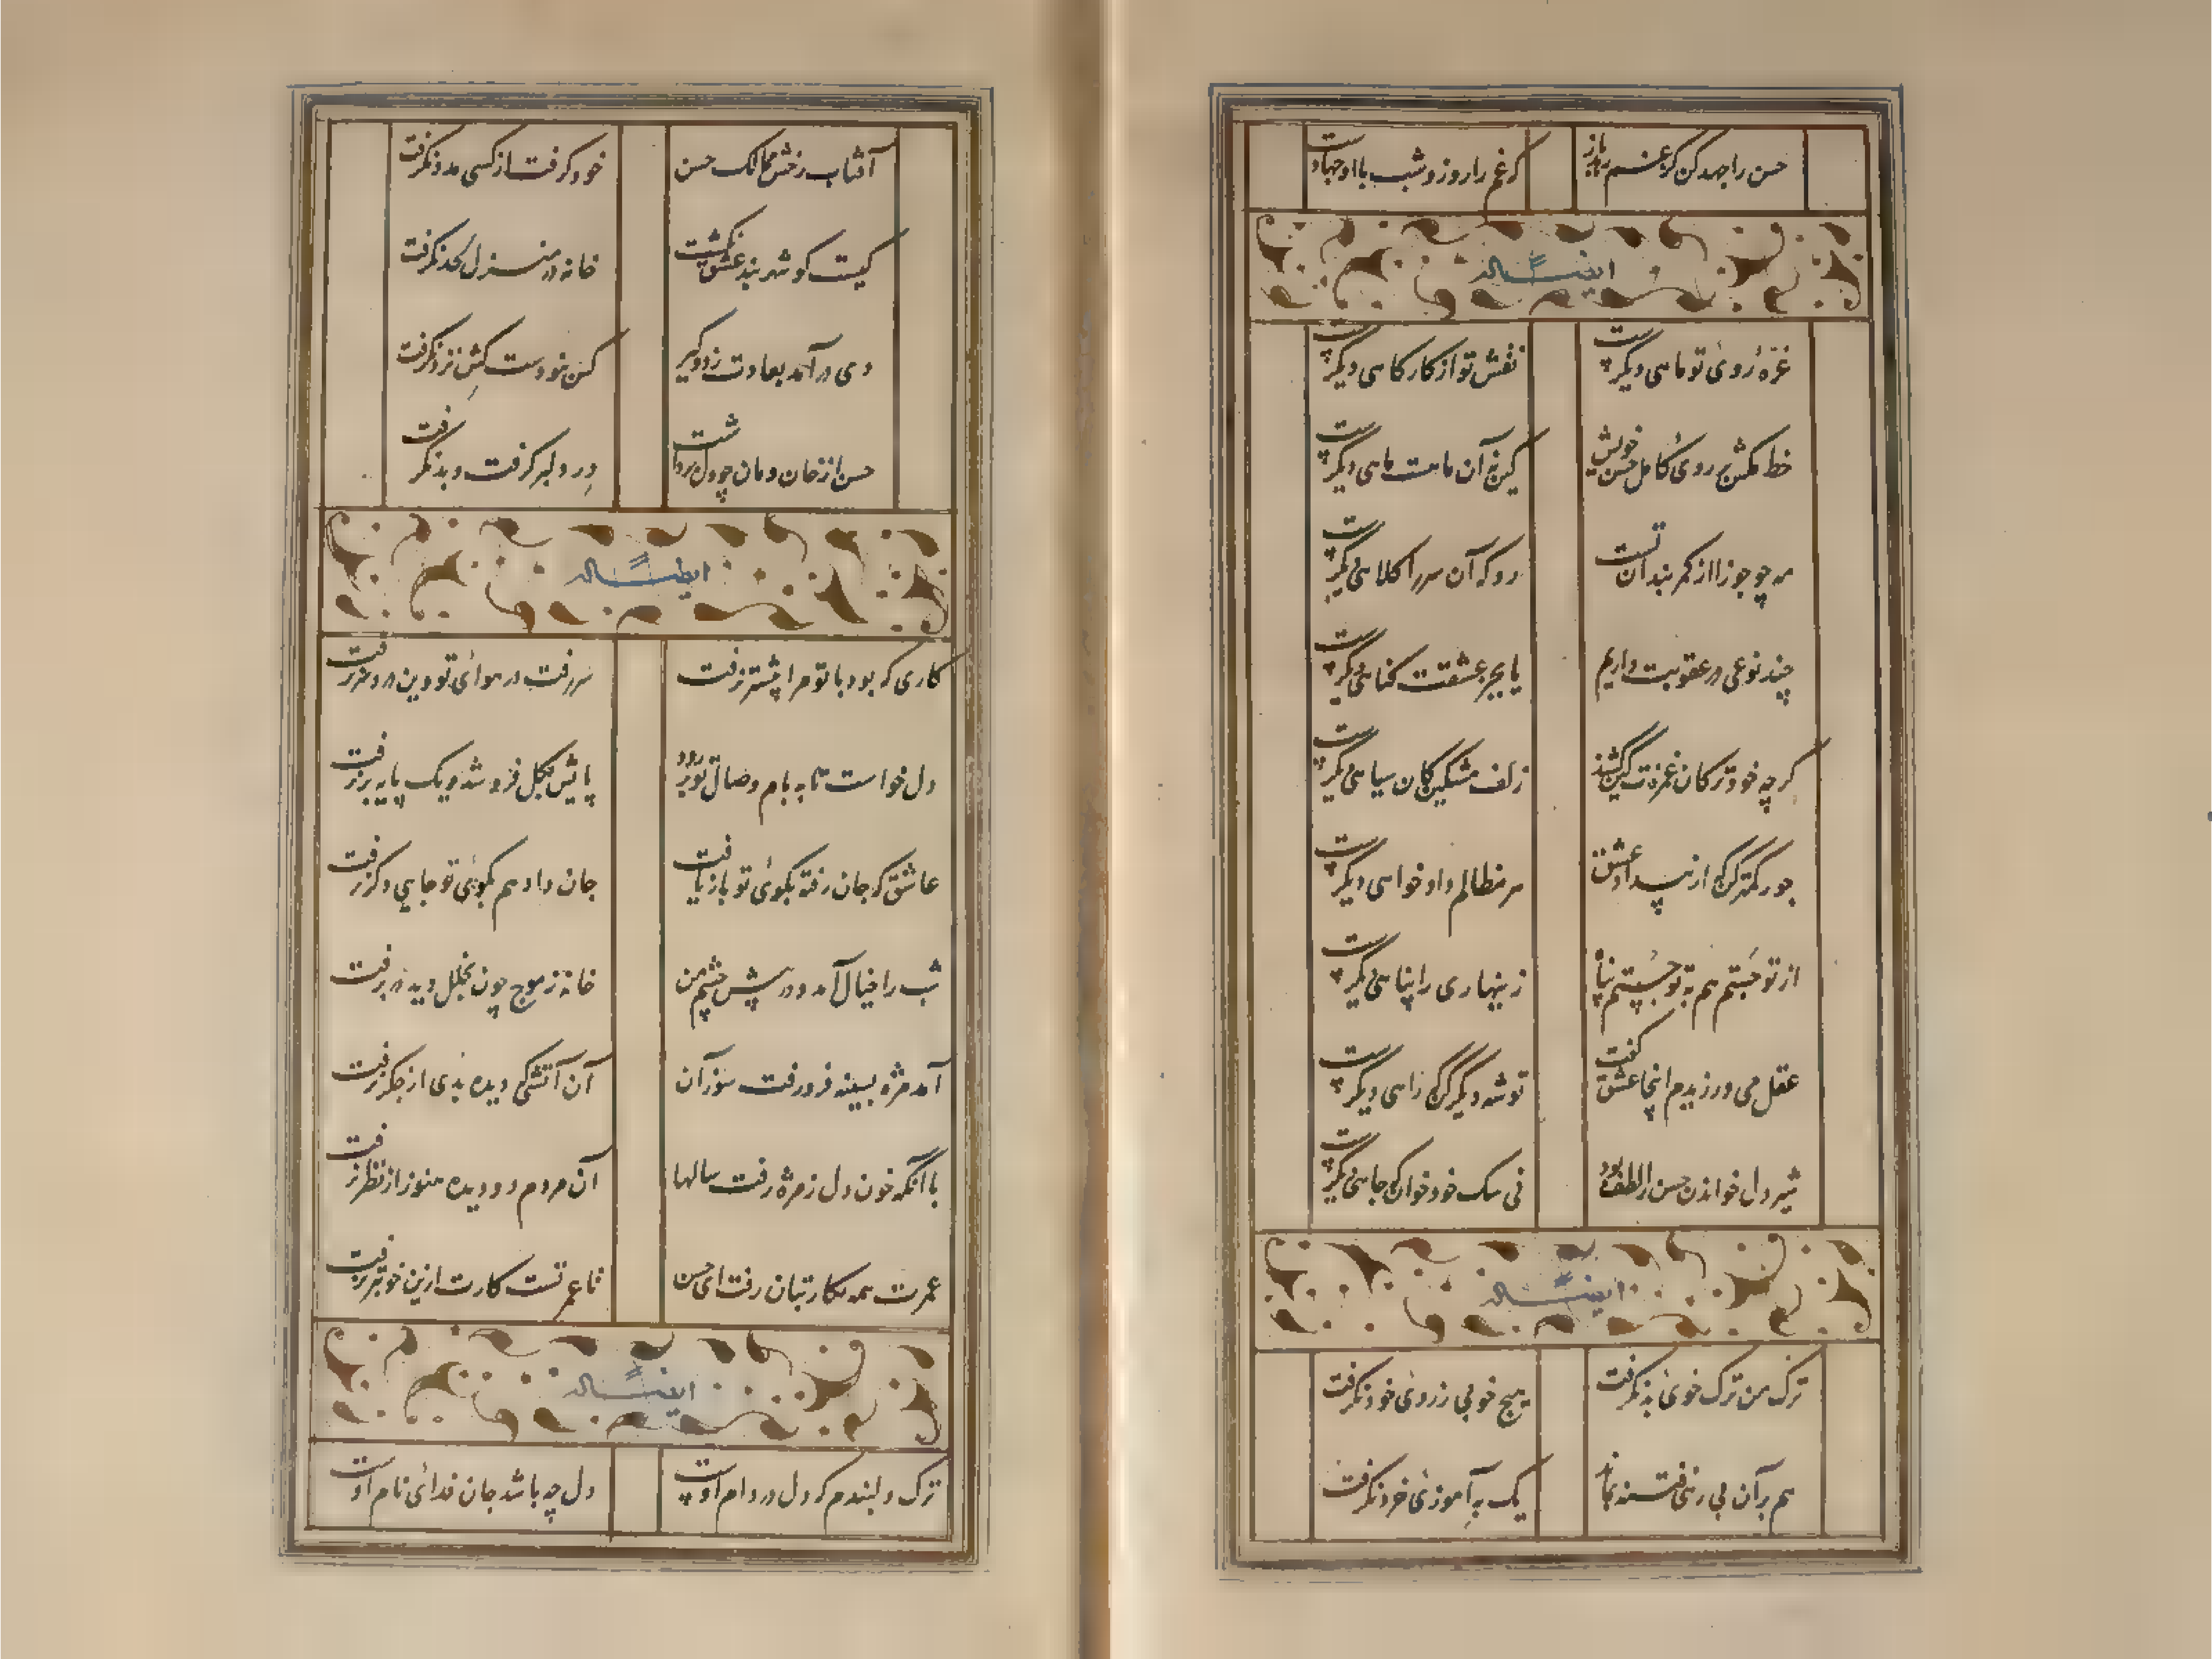 حسن را جهد کن کز غم
که غم را روز و شب با او جهاد
ایضاً له
غرّهٔ روی تو ماهی دیگرست
نقش تو از کارگاهی دیگرست
خط مکش بر روی کامل حسن خویش
کین نه آن ماهست ماهی دیگرست
مه چو جوزا از کمربندان تست
رو که آن سر را کلاهی دیگرست
چند نوعی در عقوبت داریم
یا بجز عشقت گناهی دیگرست
گرچه خود ترکان غمزت
زلف مشکین کان سیاهی دیگرست
جور کمتر کن که از بیداد عشق
هر مظالم دادخواهی دیگرست
از تو جستم هم به تو جستم پناه
زینهاری را پناهی دیگرست
عقل می‌ورزیدم اینجا عشق گفت
توشه دیگر کن که راهی دیگرست
شیر دل خواندن حسن را لطف بود
نی سگ خود خوان که جاهی دیگرست
ایضاً له
ترک من ترک خوی بد نگرفت
هیچ خوبی ز روی خود نگرفت
هم بر آن بی رهی
یک به آموزی خرد نگرفت
آفتاب رخش ممالک حسن
خود گرفت از کسی مدد نگرفت
کیست کو شهربند عشق نگشت
خانه در منزل لحد نگرفت
دی درآمد بعادت
کس نبودست کش نزد نگرفت
حسن از خان و مان چو دل برداشت
در دلبر گرفت و بد نگرفت
ایضاً له
کاری که بود با تو مرا پیشتر نرفت
سر رفت در هوای تو وین درد سر نرفت
دل خواست تا به بام وصال تو بر رود
پایش بگل فرو شد و یک پایه بر نرفت
عاشق که جان رفته بکوی تو باز یافت
جان داد هم بکوی تو جایی دگر نرفت
شب را خیال آمد و در پیش چشم من
خانه ز موج خون بخلل دید در نرفت
آمد مژه بسینه فرو رفت سوز آن
آن آتشی که دیده بدی از جگر نرفت
با آنکه خون دل ز مژه رفت سالها
آن مردم دو دیده هنوز از نظر نرفت
عمرت همه بکار بتان رفت ای حسن
تا عمر تست کارت ازین خوبتر نرفت
ایضاً له
ترک دلبندم که دل در دام اوست
دل چه باشد جان فدای نام اوست